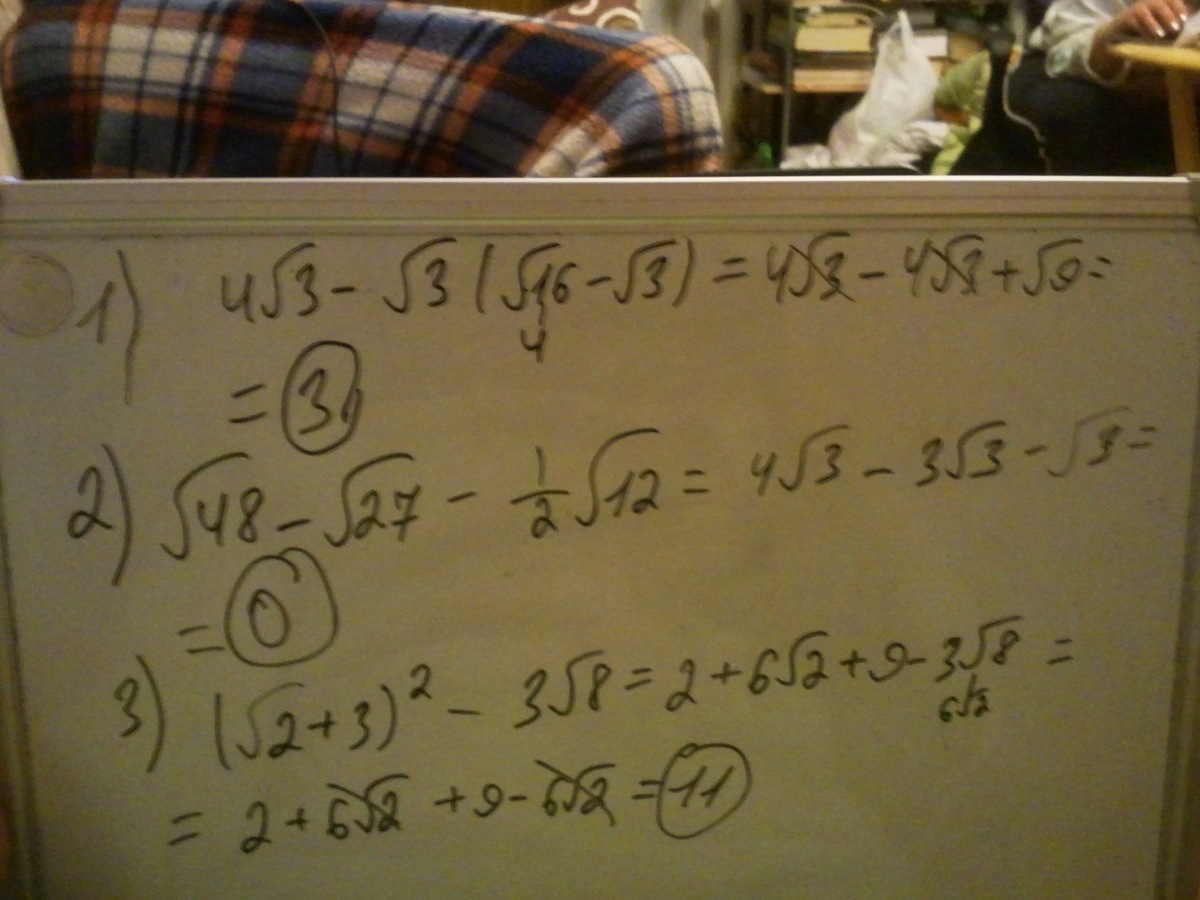 1) 4√3 - √3 (√16 - √3) = 4√3 - 4√3 + √9 =
4
= 3
2) √48 - √27 - 1/2 √12 = 4√3 - 3√3 - √3 =
= 0
3) (√2 + 3)² - 3√8 = 2 + 6√2 + 9 - 3√8 =
6√2
= 2 + 6√2 + 9 - 6√2 = 11